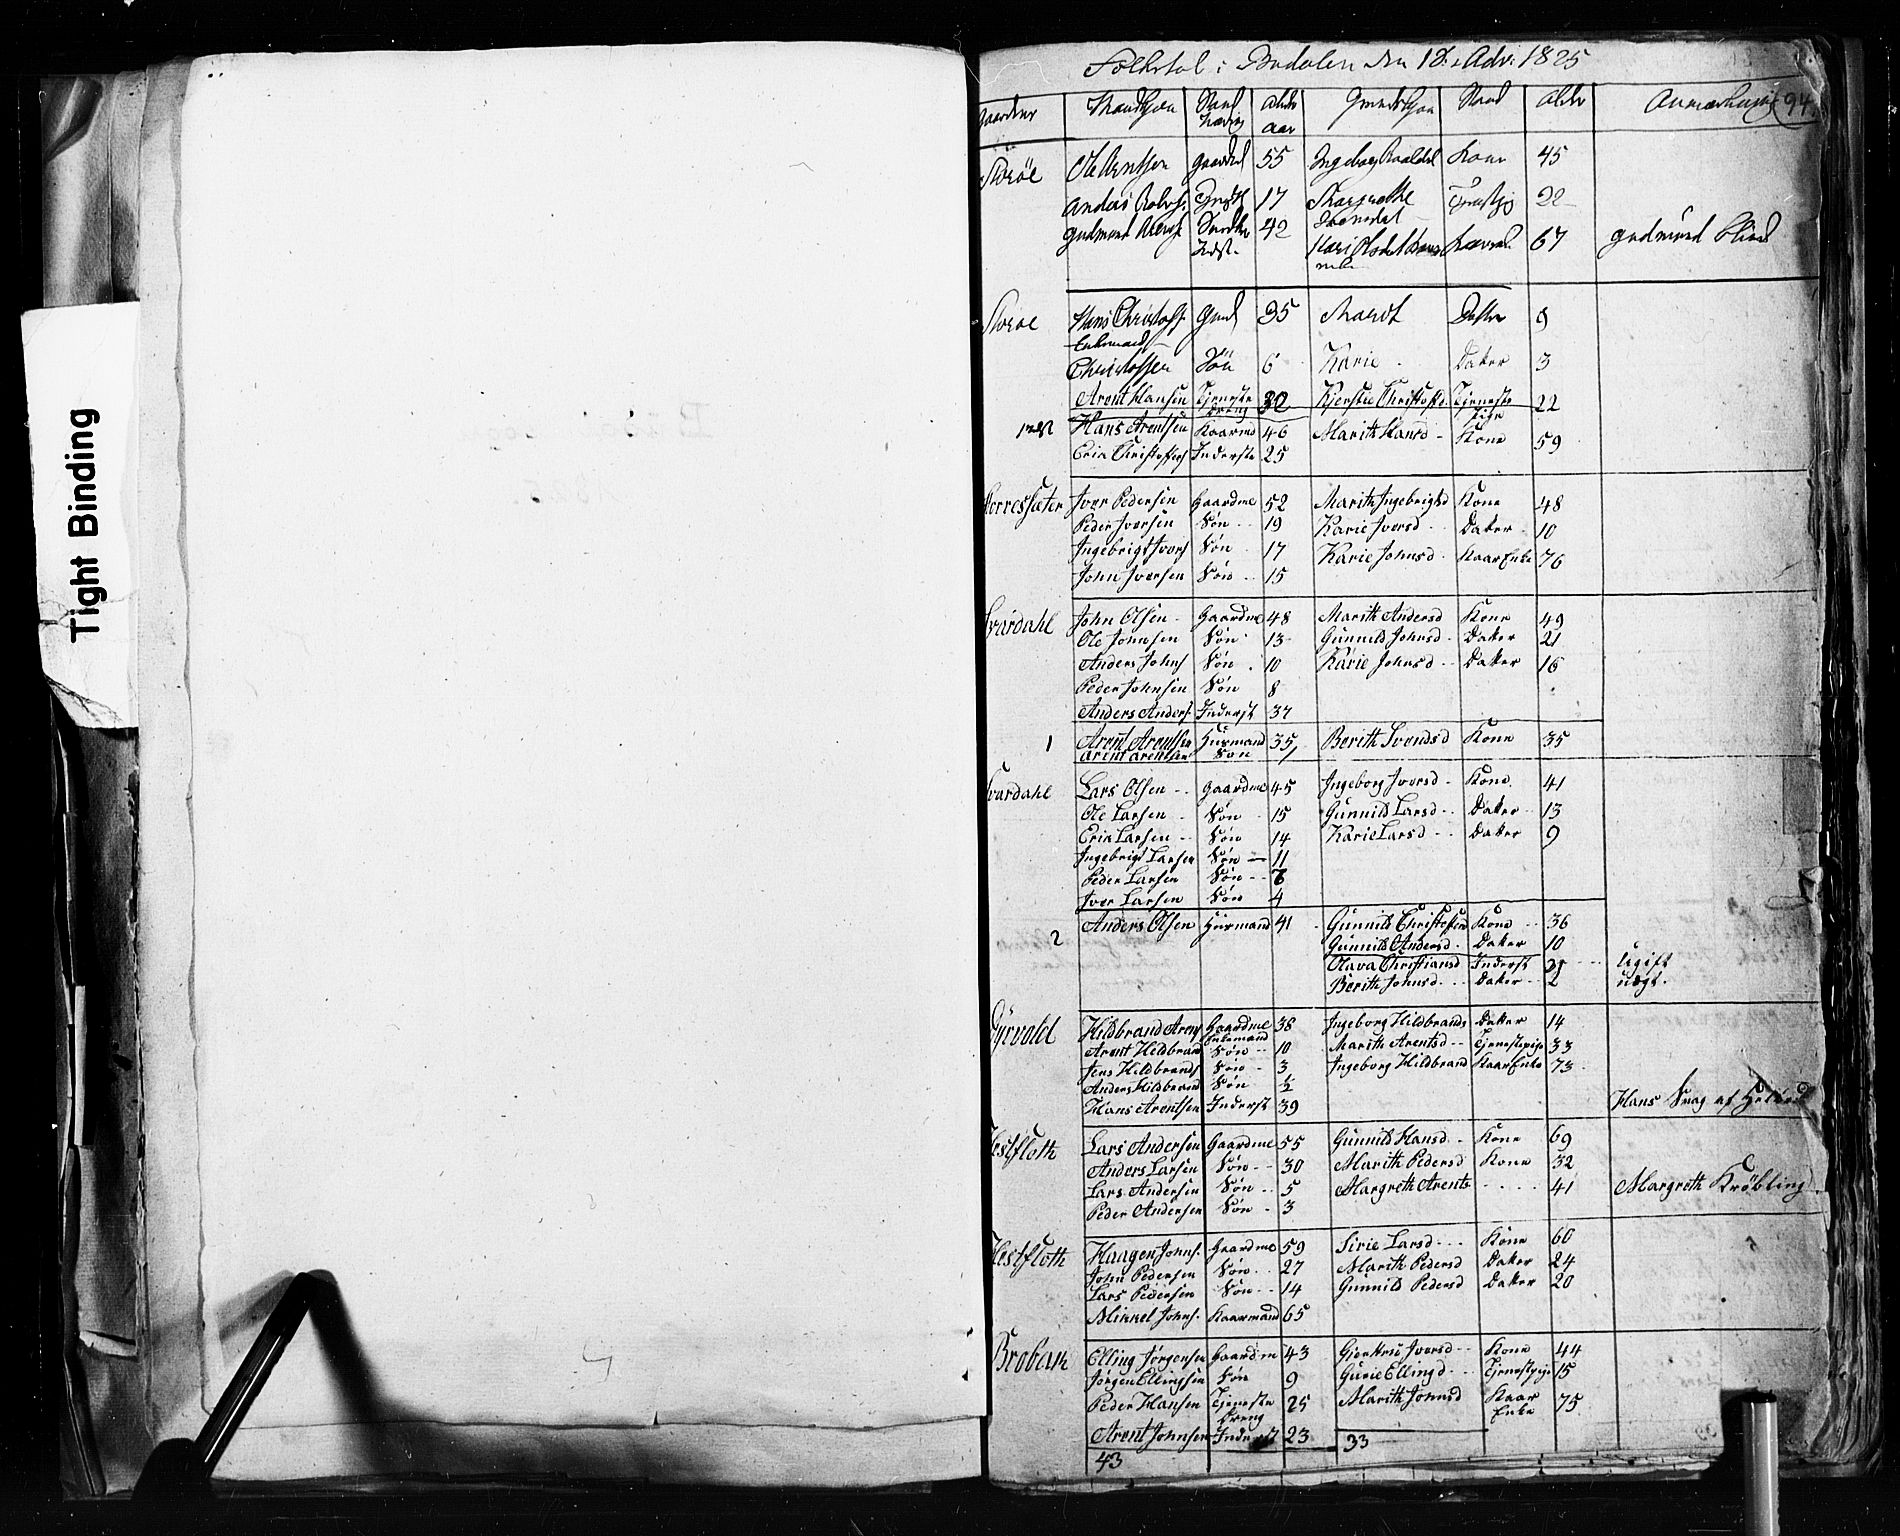 Tight Binding
Folketal i Budalen den 18. Adv: 1825
Gaardene Mandkjøn Stand Alder aar Qvindekjøn Stand Alder Anmærkning 94
Storøe Ole Arntsen gaardm 55 Ingeborg Kone 45
Anders 17 Margrethe 22
42
Kari 67 gudmund blind
Storøe Hans Christoff. Gmd 35 Marit Datter 9
Enkemand
Christoffer Søn 6 Karie Datter 3
Arent Hansen Tjeneste 32 Kjerstie Christofsd. Tjeneste 22
dreng Pige
Hans Arentsen Kaarmd 46 Marith Hansd Kone 59
Eric Christoffers Inderste 25
Iver Pedersen Gaardme 52 Marith Ingebrigtsd Kone 48
Peder Iversen Søn 19 Karie Iversd Datter 10
Ingebrigt Ivers Søn 17 Karie Johnsd KaarEnke 76
John Iversen Søn 15
John Olsen Gaardme 48 Marith Andersd Kone 49
Ole Johnsen Søn 13 Gunnild Johnsd Datter 21
Anders Johns Søn 10 Karie Johnsd Datter 16
Peder Johnsen Søn 8
Anders Anders. Inderst 37
1 Arent Arentsen Huusmand 35 Berith Svendsd Kone 35
Arent Arentsen Søn 1
Lars Olsen Gaardme 45 Ingeborg Iversd Kone 41
Ole Larsen Søn 15 Gunnild Larsd Datter 13
Eric Larsen Søn 14 Karie Larsd Datter 9
Ingebrigt Larsen Søn 11
Peder Larsen Søn 7
Iver Larsen Søn 4
2 Anders Olsen Huusmand 41 Gunnild Christofsen Kone 36
Gunnild Andersd Datter 10
Olava Christiansd Inderst Ugift
Berith Johnsd Datter 2 uægt.
Gyrvold Hildbrand Arens Gaardme 38 Ingeborg Hildbrands Datter 14
Enkemand
Arent Hildbrand Søn 10 Marith Arentsd Tjenestepige 33
Jens Hildbrands Søn 3 Ingeborg Hildbrand KaarEnke 73
Anders Hildbrand Søn ½
Hans Arentsen Inderst 39 Hans Svag af Helbred
Hestfloth Lars Andersen Gaardme 55 Gunnild Hansd Kone 69
Anders Larsen Søn 30 Marith Pedersd Kone 32
Lars Andersen Søn 5 Margreth Arents 41 Margreth Krøbling
Peder Andersen Søn 3
Hestfloth Haagen Johns. Gaardme 59 Sirie Larsd Kone 60
John Pedersen Søn 27 Marith Pedersd Datter 24
Lars Pedersen Søn 14 Gunnild Pedersd Datter 20
Mikkel Johns. Kaarmand 65
Elling Jørgensen Gaardm 43 Gjertrue Iversd Kone 44
Jørgen Ellingsen Søn 9 Gurie Ellingd Tjenestpige 15
Peder Hansen Tjeneste 25 Marith Johnsd Kaar 75
dreng Enke
Arent Johnsen Inderst 23
43 33